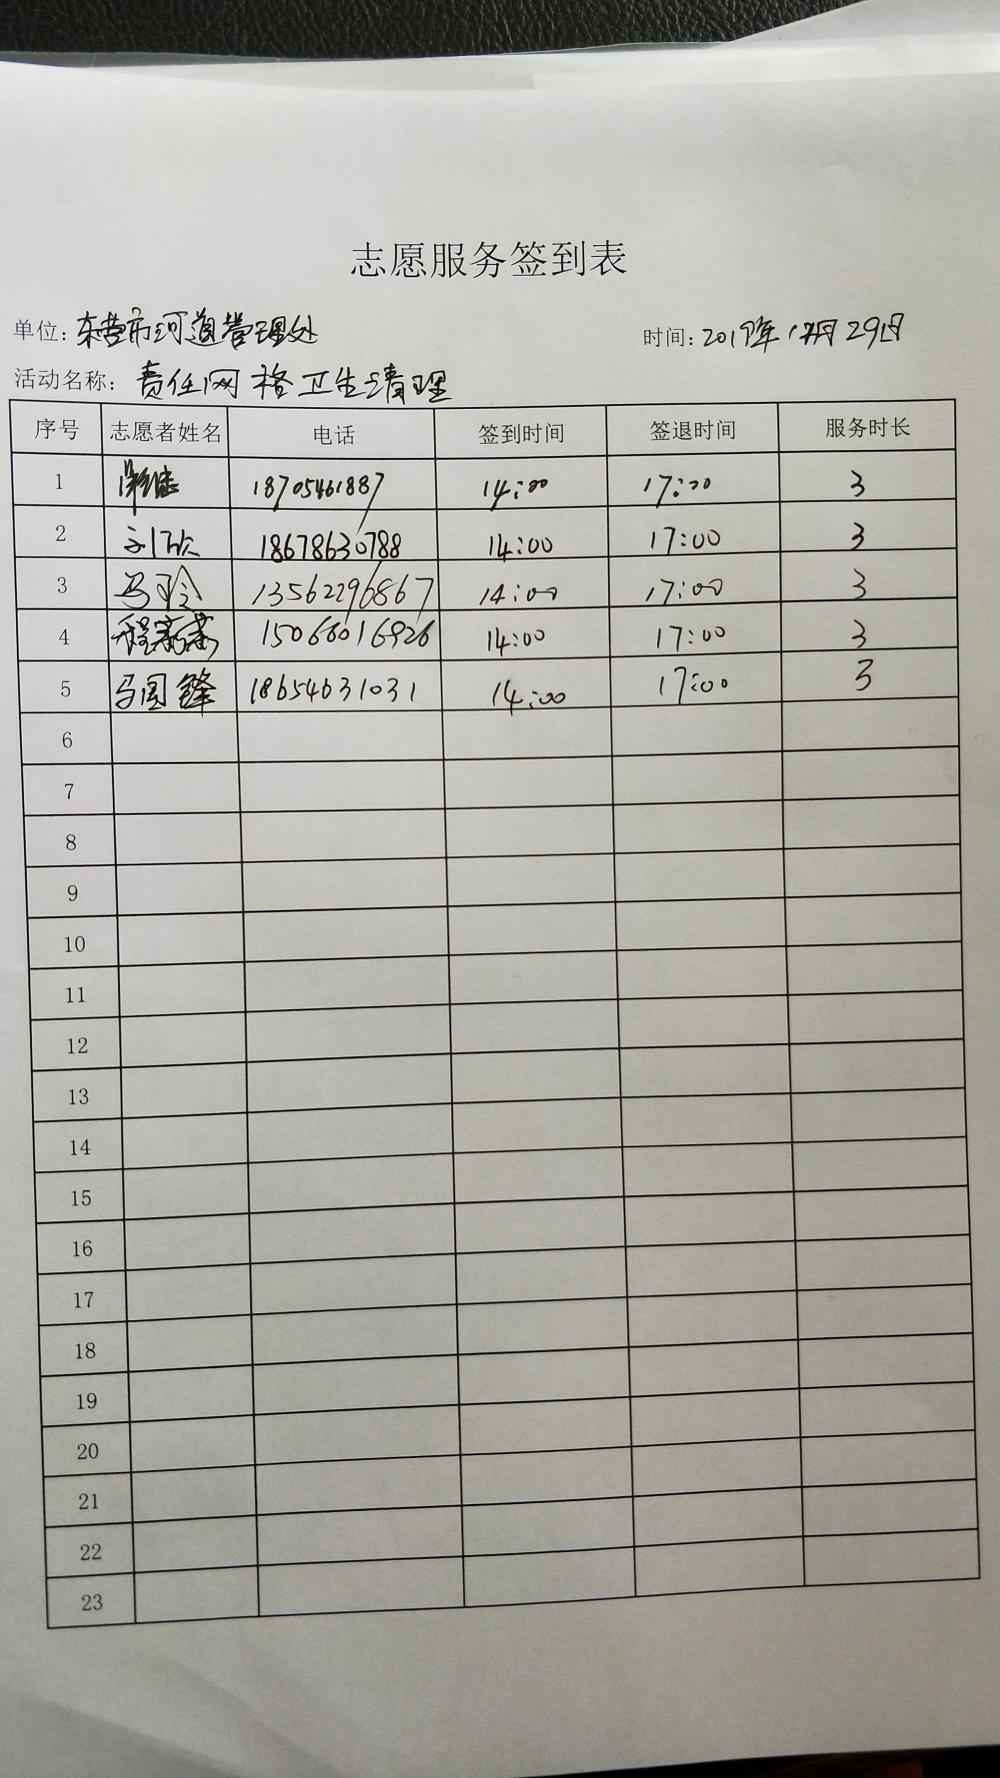 志愿服务签到表
单位：东营市河道管理处 时间：2017年12月29日
活动名称：责任网格卫生清理
序号 志愿者姓名 电话 签到时间 签退时间 服务时长
1 18705461887 14:00 17:00 3
2 刘欣 18678630788 14:00 17:00 3
3 马玲 13562296867 14:00 17:00 3
4 程 15066016926 14:00 17:00 3
5 马国锋 18654631031 14:00 17:00 3
6
7
8
9
10
11
12
13
14
15
16
17
18
19
20
21
22
23